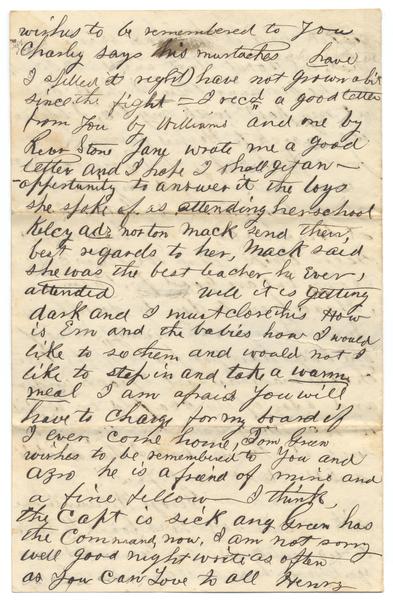 wishes to be remembered to You
Charley says his mustaches have
I spilled it right) have not grown a bit
since the fight = I recd a good letter
from You by Williams and one by
Revr Stone Jane wrote me a good
letter and I hope I shall get an
opportunity to answer it the boys
she spoke of as attending her school
Kelcy adz norton Mack send their
best regards to her, Mack said
she was the best teacher he Ever,
attended Well it is getting
dark and I must close this How
is Em and the babies how I would
like to se them and would not I
like to step in and take a warm
meal I am afraid You will
have to charge for my board if
I ever come home, Tom Green
wishes to be remembered to You and
Azro he is a friend of mine and
a fine fellow I think,
the Capt is sick and Green has
the Command now, I am not sorry
well good night write as often
as You Can Love to all Henry